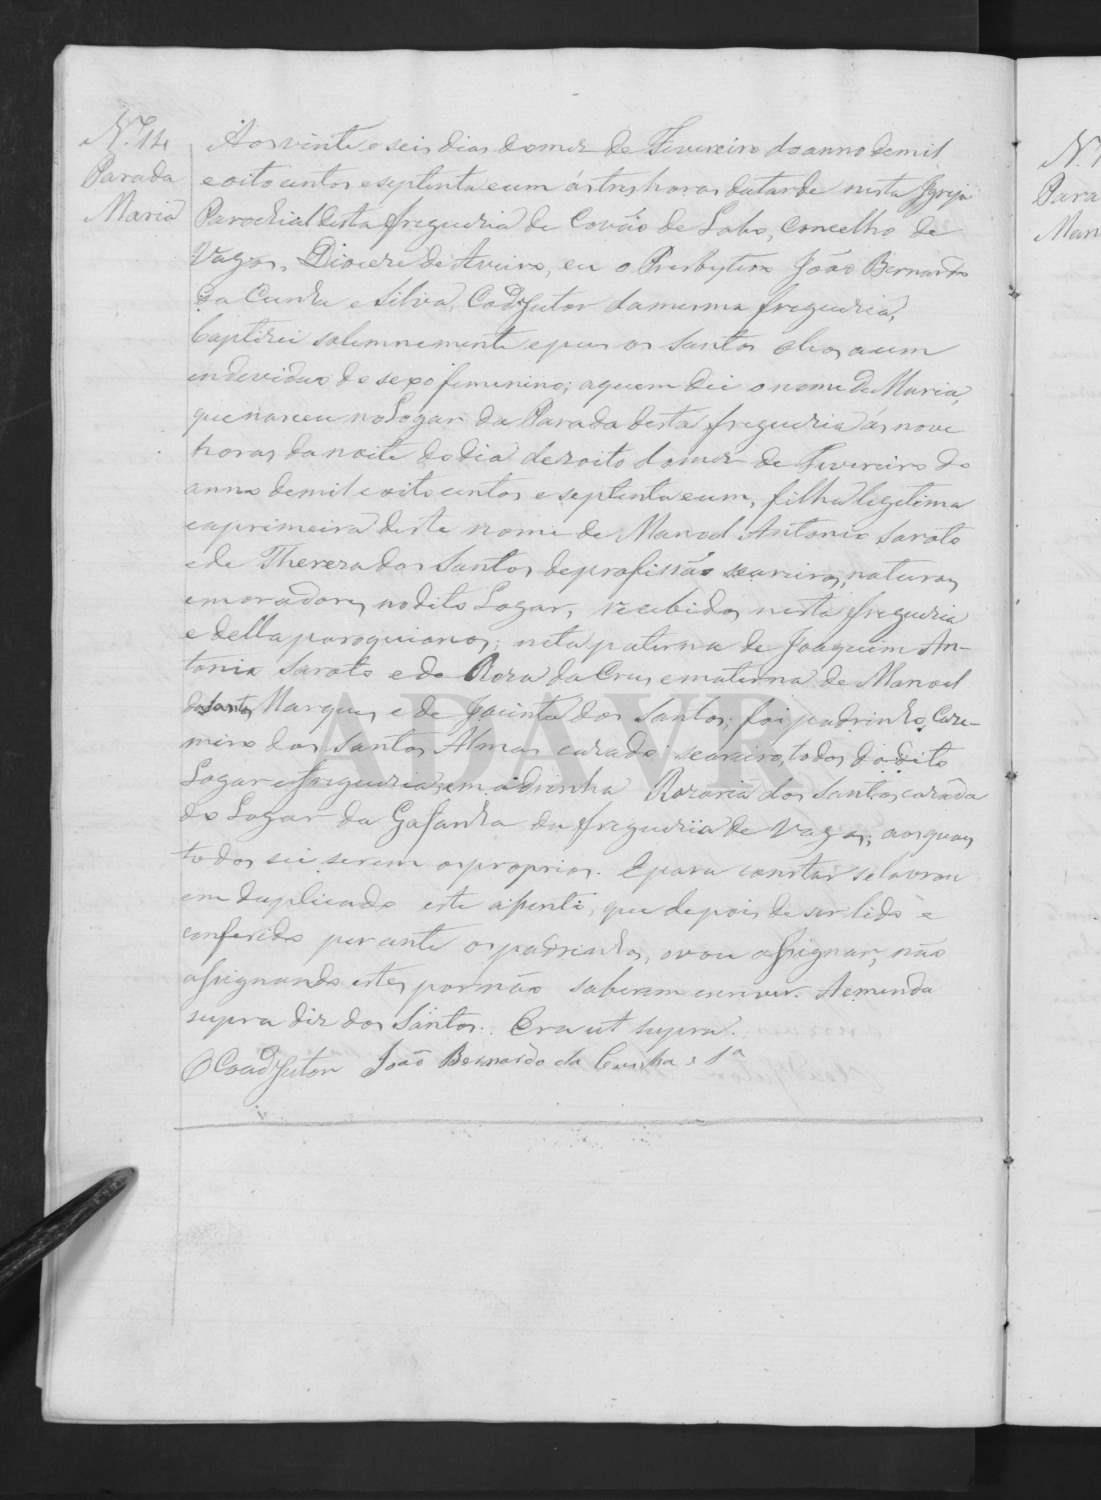 N.º 14
Parada
Maria
Aos vinte e seis dias do mez de Fevereiro do anno de mil
e oito centos e septenta e um ás tres horas da tarde nesta Igreja
Parochial desta freguezia de Covão de Lobo, Concelho de
Vagos, Diocese de Aveiro, eu o Presbytero João Bernardo
da Cunha e Silva, Coadjutor da mesma freguezia,
baptizei solemnemente e pus os santos oleos a um
individuo do sexo femenino; a quem dei o nome de Maria,
que nasceu no Logar da Parada desta freguezia ás nove
horas da noite do dia dezoito do mez de Fevereiro do
anno de mil e oito centos e septenta e um, filha legitima
e a primeira deste nome de Manoel Antonio Saroto
e de Thereza dos Santos de profissão seareiros, naturaes
e moradores no dito Logar, recebidos nesta freguezia
e della paroquianos; neta paterna de Joaquim An-
tonio Saroto e de Roza da Cruz e materna de Manoel
dos Santos Marques e de Jacinta dos Santos; foi padrinho, Caze-
miro dos Santos Almas cazado seareiro, todos do dito
Logar e freguezia; e madrinha Rozaria dos Santos, cazada
do Logar da Gafanha da freguezia de Vagos; aos quaes
todos sei serem os proprios. E para constar se lavrou
em duplicado este assento, que depois de ser lido e
conferido perante os padrinhos, o vou assignar, não
assignando estes por não saberem escrever. A emenda
supra diz dos Santos. Era ut supra.
O Coadjutor João Bernardo da Cunha e S.ª
N.
Para
Man
ADAVR